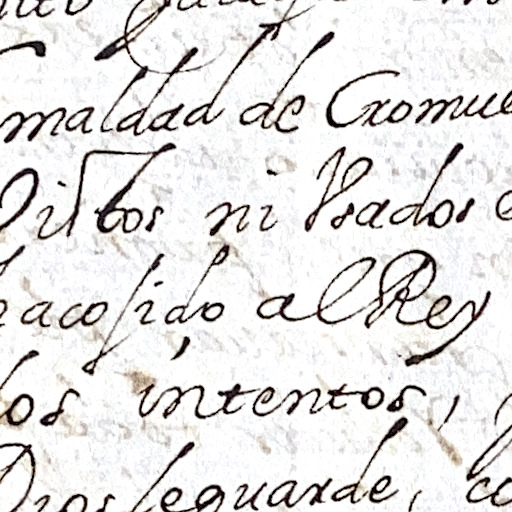 maldad de Cromue
Vistos ni Vsados e
hacosido al Rey
los intentos,
Dios leguarde, co